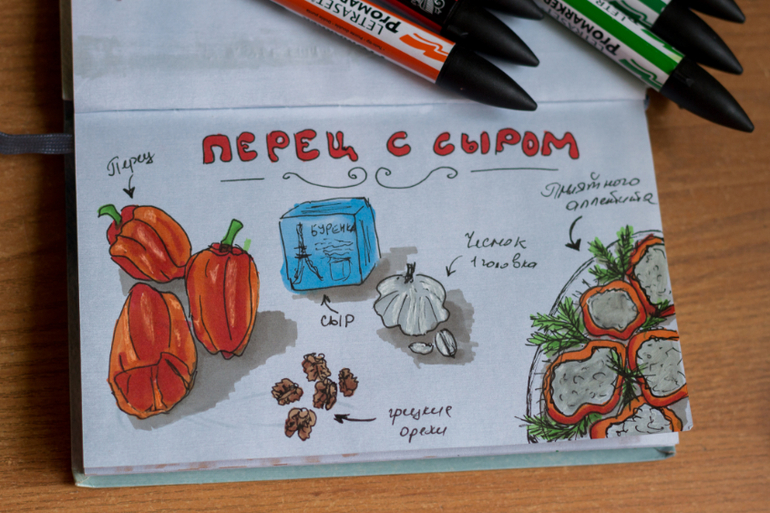 LETRASET
PROMARKER
LETRASET
PROMARKER
ПЕРЕЦ С СЫРОМ
Перец
Приятного
аппетита
БУРЕНКА
Чеснок
1 головка
СЫР
грецкие
орехи